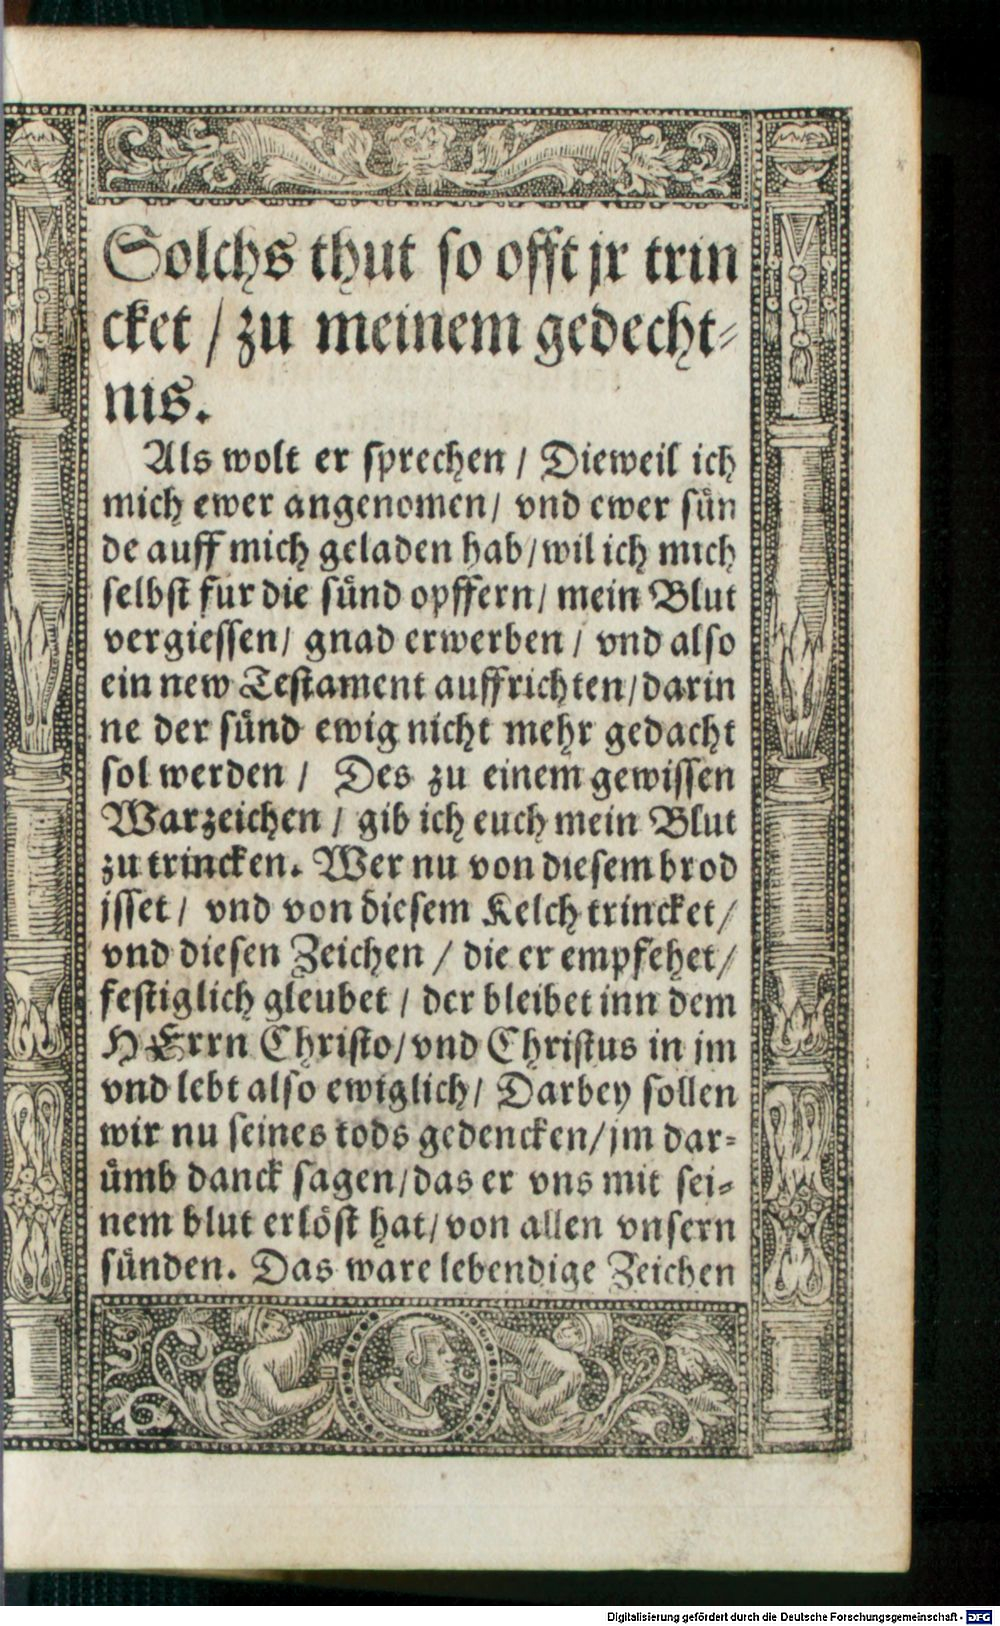 Solchs thut so offt jr trin
cket / zu meinem gedecht-
nis.
Als wolt er sprechen / Dieweil ich
mich ewer angenomen / vnd ewer sün
de auff mich geladen hab / wil ich mich
selbst fur die sünd opffern / mein Blut
vergiessen / gnad erwerben / vnd also
ein new Testament auffrichten / darin
ne der sünd ewig nicht mehr gedacht
sol werden / Des zu einem gewissen
Warzeichen / gib ich euch mein Blut
zu trincken. Wer nu von diesem brod
isset / vnd von diesem Kelch trincket /
vnd diesen Zeichen / die er empfehet /
festiglich gleubet / der bleibet inn dem
HErrn Christo / vnd Christus in jm
vnd lebt also ewiglich / Darbey sollen
wir nu seines tods gedencken / jm dar-
ümb danck sagen / das er vns mit sei-
nem blut erlöst hat / von allen vnsern
sünden. Das ware lebendige Zeichen
Digitalisierung gefördert durch die Deutsche Forschungsgemeinschaft - DFG